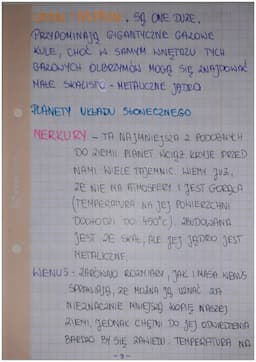 . SĄ ONE DUŻE.
PRZYPOMINAJĄ GIGANTYCZNE GAZOWE
KULE, CHOĆ W SAMYM WNĘTRZU TYCH
GAZOWYCH OLBRZYMÓW MOGĄ SIĘ ZNAJDOWAĆ
MAŁE SKALISTO - METALICZNE JĄDRA
PLANETY UKŁADU SŁONECZNEGO
MERKURY - TA NAJMNIEJSZA Z PODOBNYCH
DO ZIEMI PLANET WCIĄŻ KRYJE PRZED
NAMI WIELE TAJEMNIC. WIEMY JUŻ,
ŻE NIE MA ATMOSFERY I JEST GORĄCA
(TEMPERATURA NA JEJ POWIERZCHNI
DOCHODZI DO 450°C). ZBUDOWANA
JEST ZE SKAŁ, ALE JEJ JĄDRO JEST
METALICZNE.
WENUS - ZARÓWNO ROZMIARY, JAK I MASA WENUS
SPRAWIAJĄ, ŻE MOŻNA JĄ UZNAĆ ZA
NIEZNACZNIE MNIEJSZĄ KOPIĘ NASZEJ
ZIEMI, JEDNAK CHĘTNI DO JEJ ODWIEDZENIA
BARDZO BY SIĘ ZAWIEDLI. TEMPERATURA NA